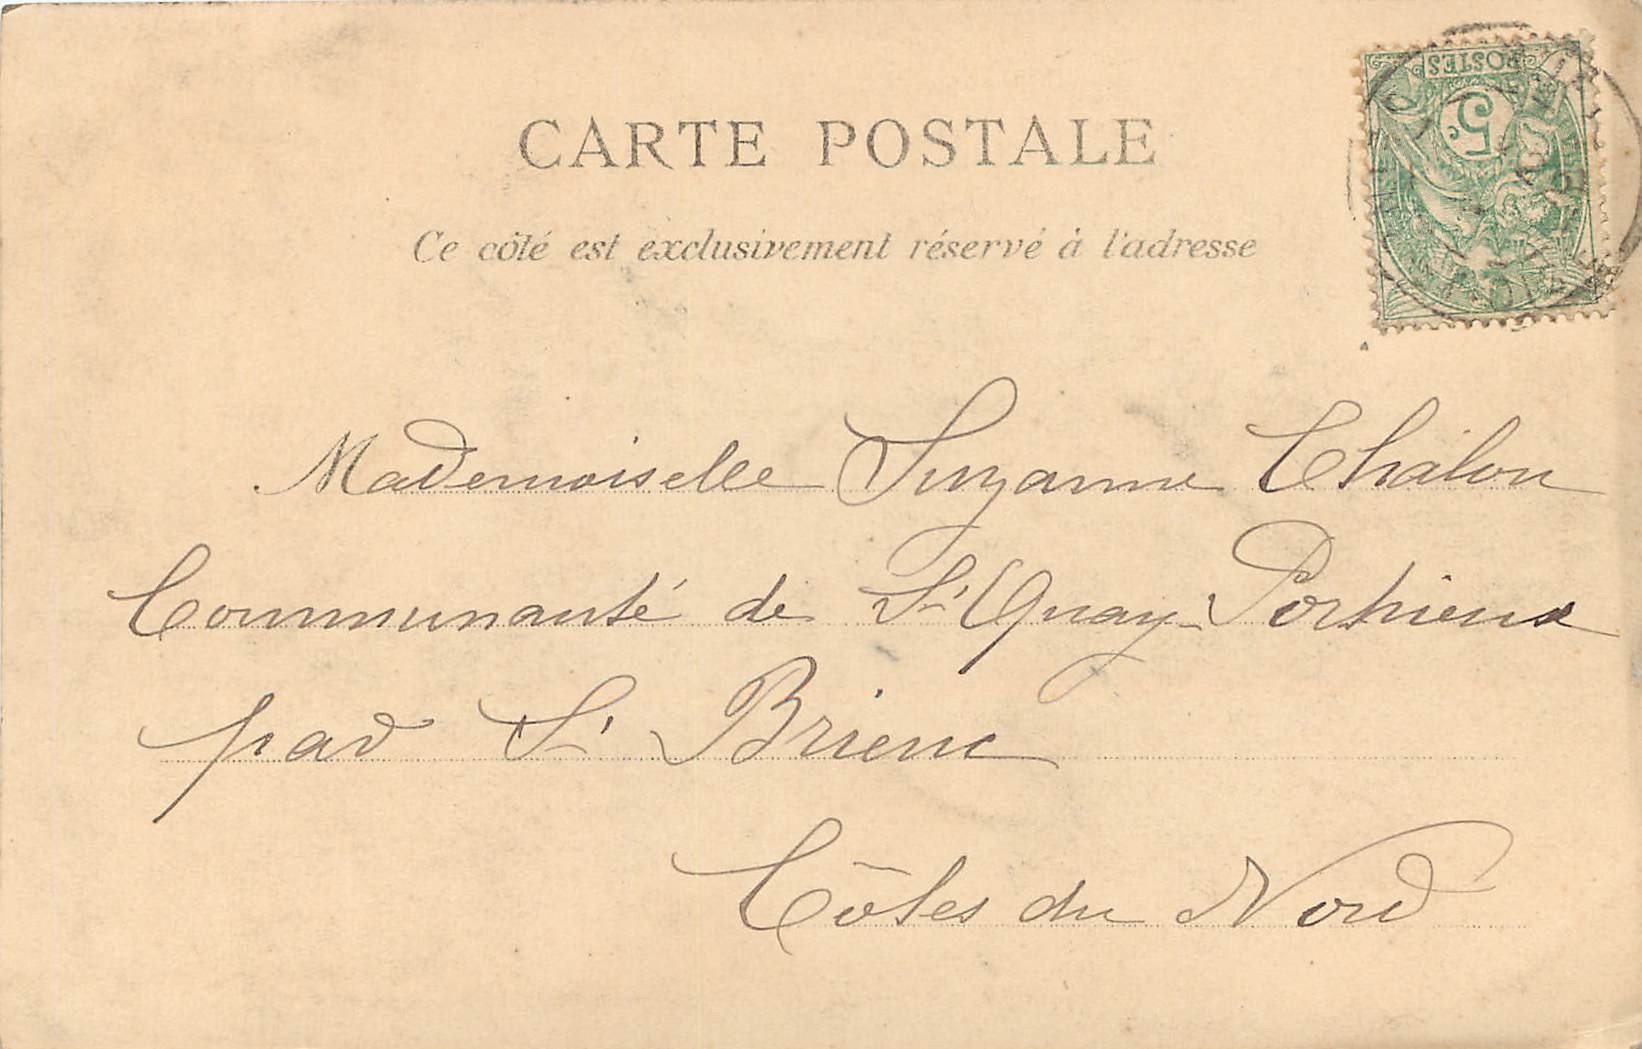 CARTE POSTALE
Ce côté est exclusivement réservé à l'adresse
POSTES
5c
Mademoiselle Suzanne Châlon
Communauté de St Quay-Portrieux
par St Brieuc
Côtes du Nord